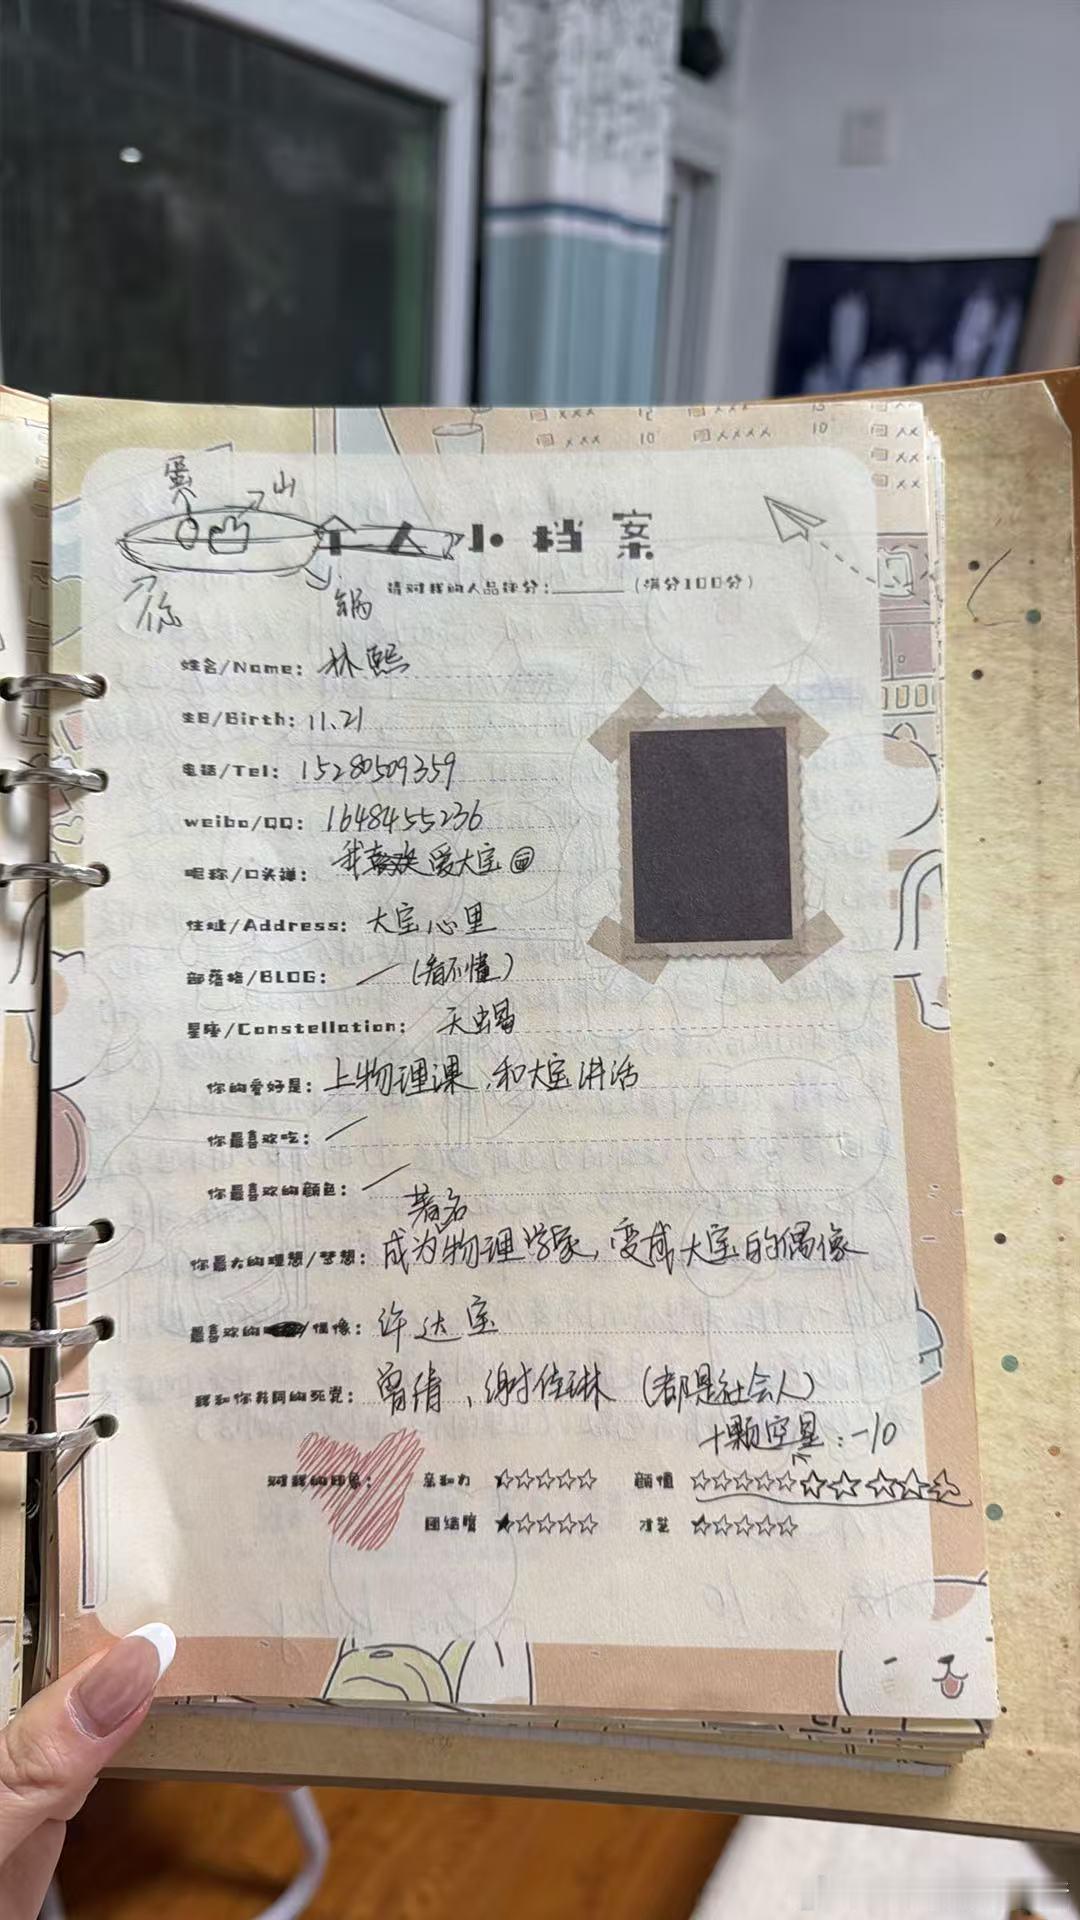 xxx 15 xxxx 15
xxx 10 xxxx 10 xx
xx
xx
蛋
山
个人小档案
请对我的人品评分：______（满分100分）
你
锅
姓名/Name：林熙
生日/Birth：11.21
电话/Tel：15280509359
weibo/QQ：1648455236
昵称/口头禅：我喜欢爱大宝
住址/Address：大宝心里
部落格/BLOG：（看不懂）
星座/Constellation：天蝎
你的爱好是：上物理课，和大宝讲话
你最喜欢吃：
你最喜欢的颜色：
著名
你最大的理想/梦想：成为物理学家，变成大宝的偶像
最喜欢的/偶像：许达宝
我和你共同的死党：曾倩、谢佳琳（都是社会人）
十颗空星：-10
对我的印象：亲和力 ★☆☆☆☆ 颜值 ☆☆☆☆☆☆☆☆☆☆
团结度 ★☆☆☆☆ 才艺 ★☆☆☆☆